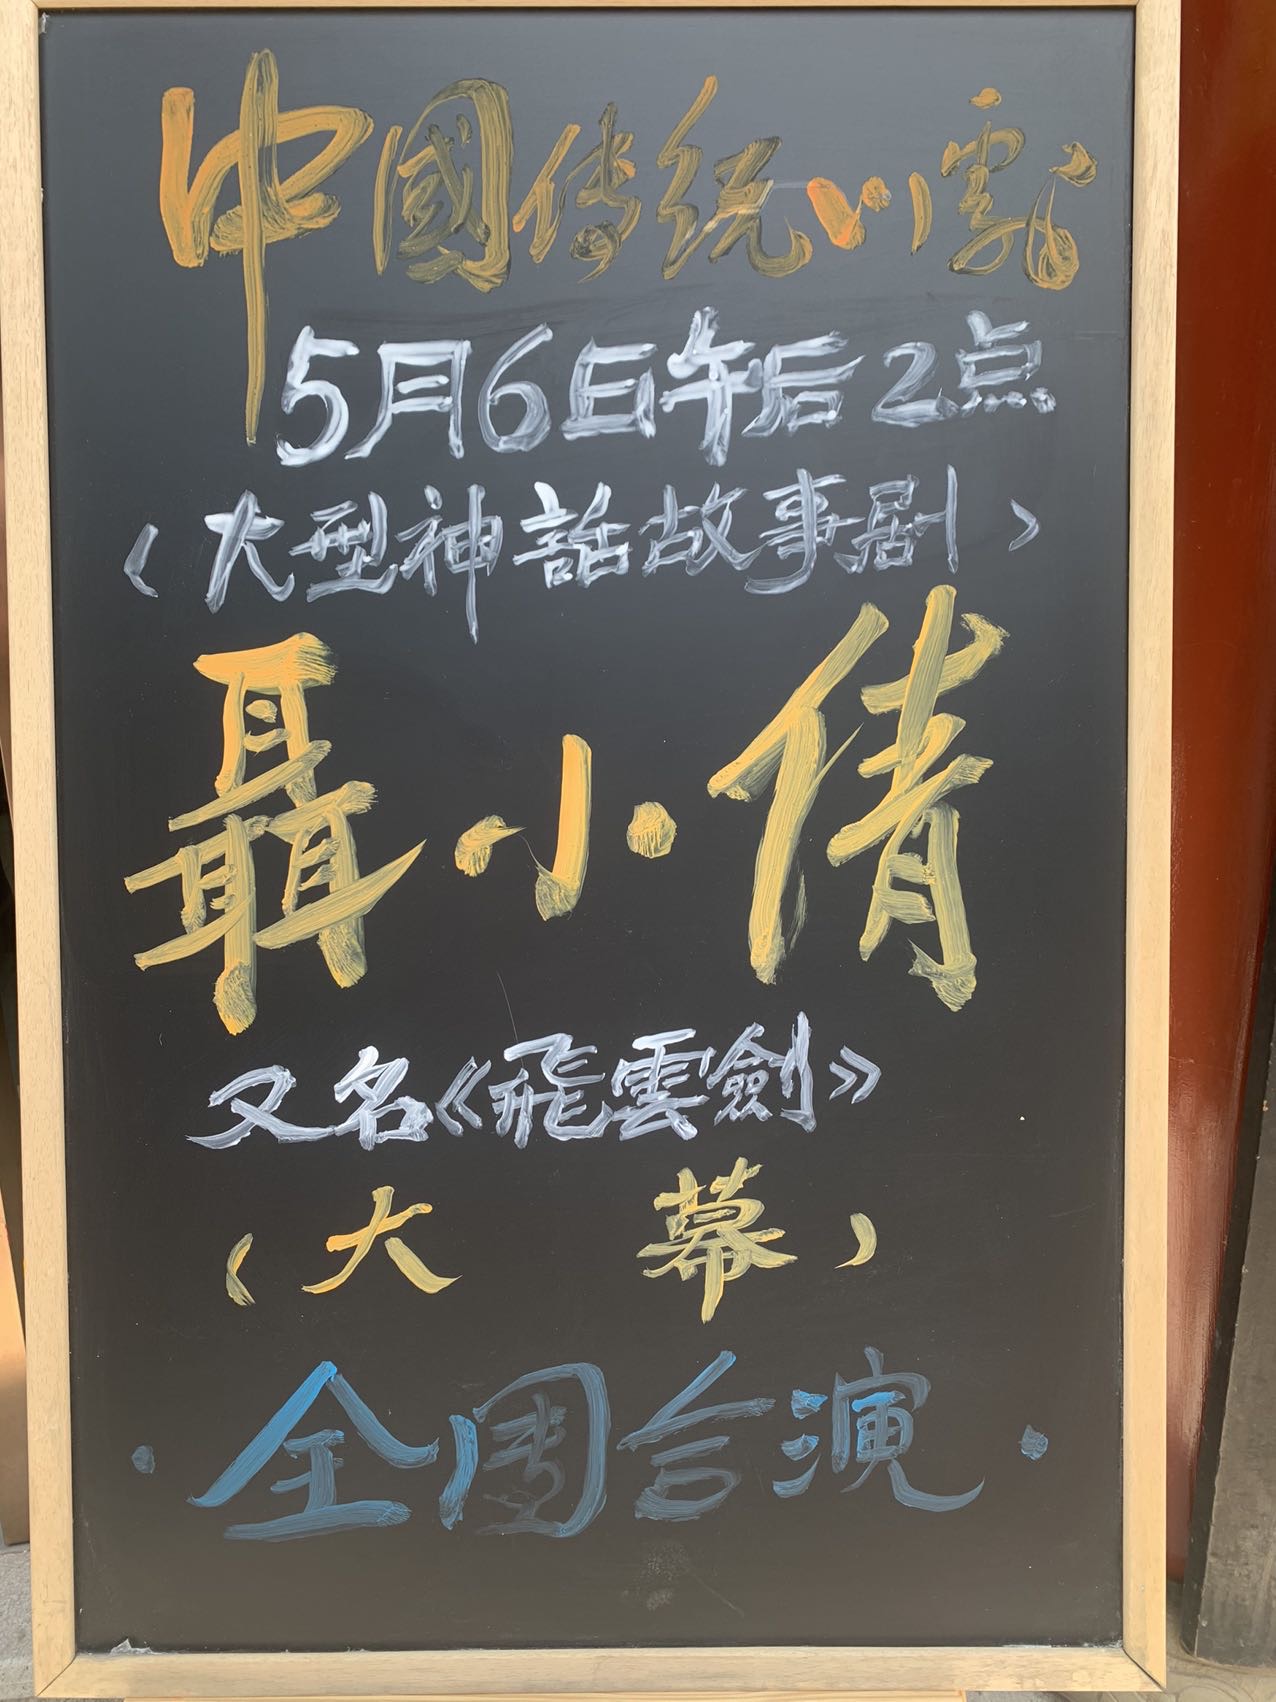 中國传统川劇
5月6日午后2点
〈大型神話故事剧〉
聶小倩
又名《飛雲劍》
（大 幕）
·全團合演·